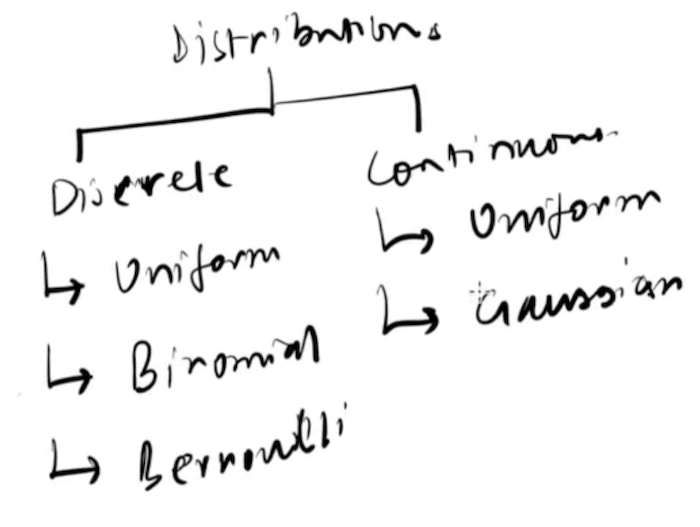 Distributions
Discrete
↳ Uniform
↳ Binomial
↳ Bernoulli
Continuous
↳ Uniform
↳ Gaussian